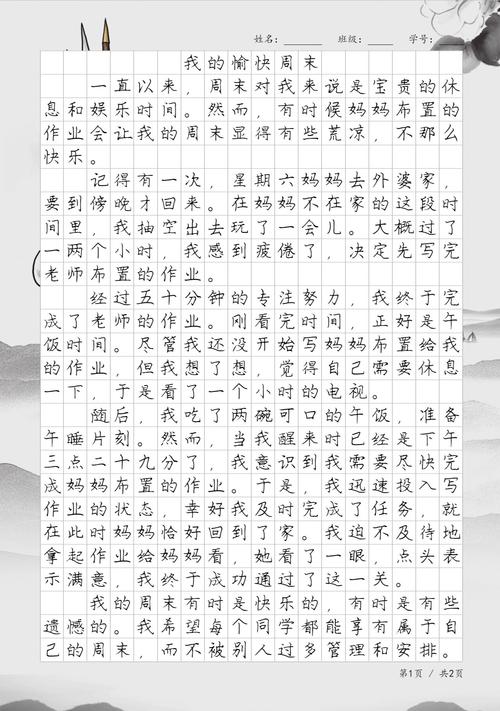 姓名：______ 班级：____ 学号：
我的愉快周末
一直以来，周末对我来说是宝贵的休
息和娱乐时间。然而，有时候妈妈布置的
作业会让我的周末显得有些荒凉，不那么
快乐。
记得有一次，星期六妈妈去外婆家，
要到傍晚才回来。在妈妈不在家的这段时
间里，我抽空出去玩了一会儿。大概过了
一两个小时，我感到疲倦了，决定先写完
老师布置的作业。
经过五十分钟的专注努力，我终于完
成了老师的作业。刚看完时间，正好是午
饭时间。尽管我还没开始写妈妈布置给我
的作业，但我想了想，觉得自己需要休息
一下，于是看了一个小时的电视。
随后，我吃了两碗可口的午饭，准备
午睡片刻。然而，当我醒来时已经是下午
三点二十九分了，我意识到我需要尽快完
成妈妈布置的作业。于是，我迅速投入写
作业的状态，幸好我及时完成了任务，就
在此时妈妈恰好回到了家。我迫不及待地
拿起作业给妈妈看，她看了一眼，点头表
示满意，我终于成功通过了这一关。
我的周末有时是快乐的，有时是有些
遗憾的。我希望每个同学都能享有属于自
己的周末，而不被别人过多管理和安排。
第1页 / 共2页